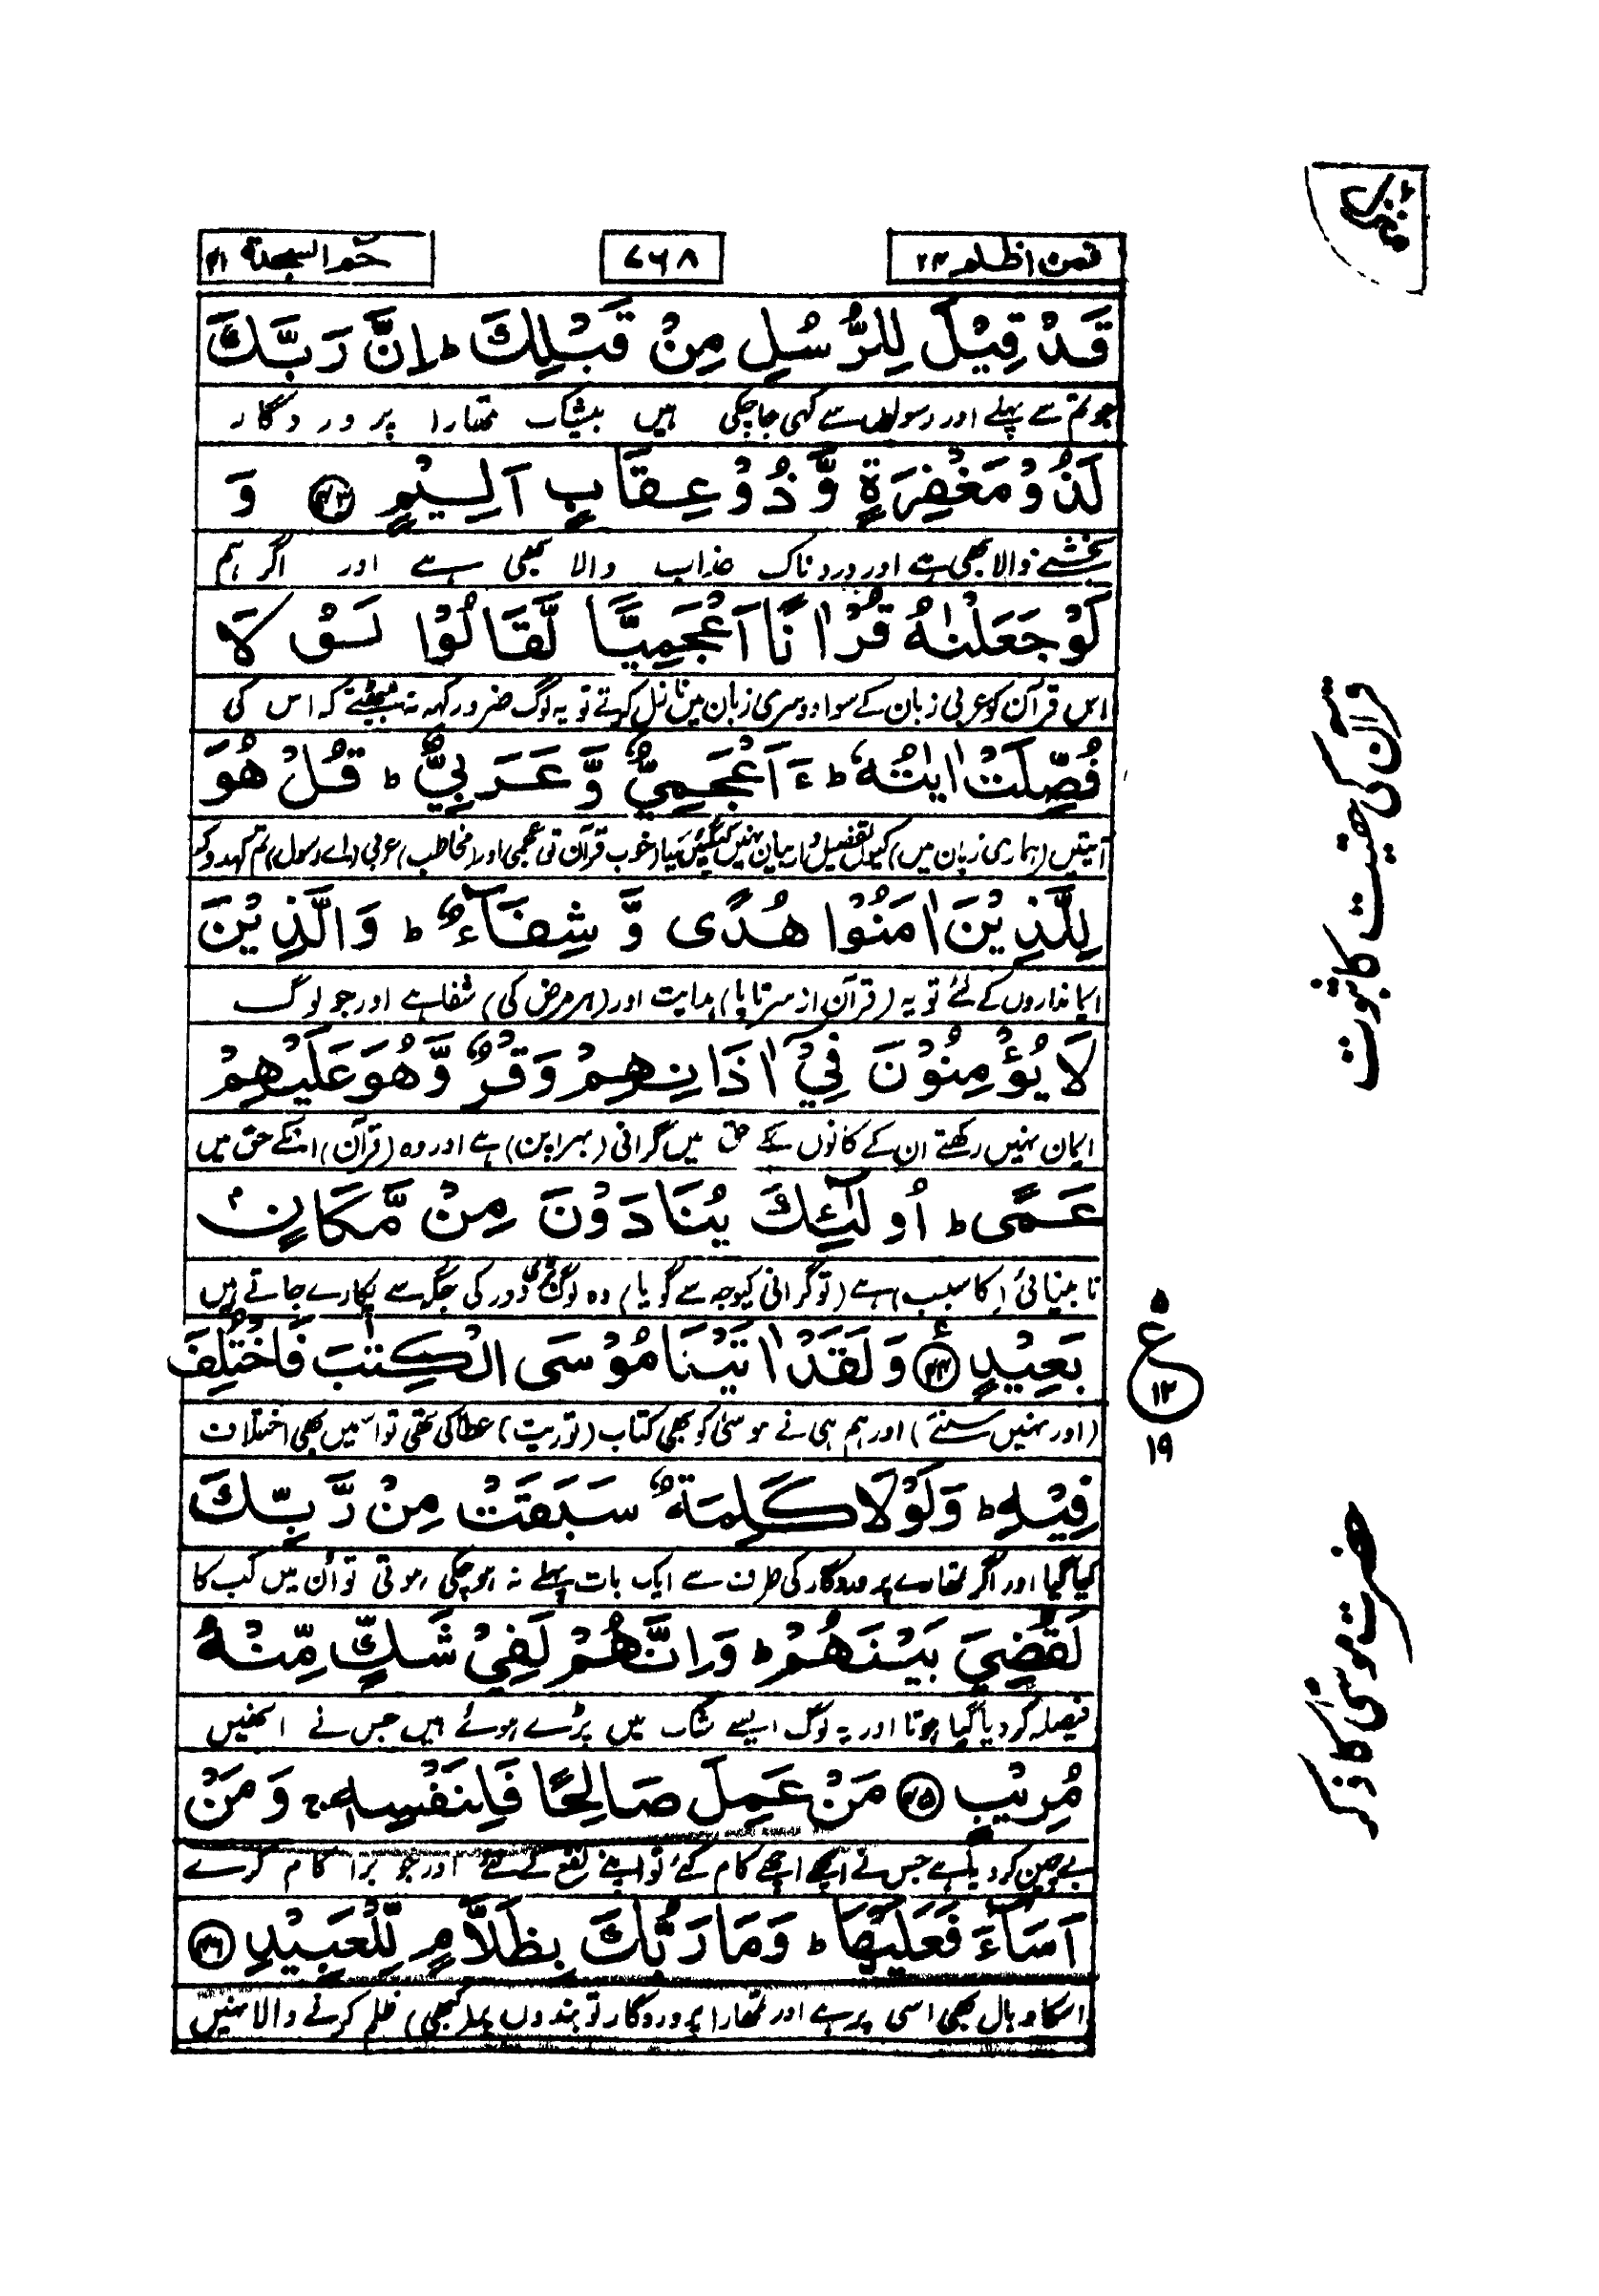 فمن اظلم ۲۴
۷۶۸
حٰمٓ السجدة ۴۱
قَدْ قِيْلَ لِلرُّسُلِ مِنْ قَبْلِكَ ؕ اِنَّ رَبَّكَ
جو تم سے پہلے اور رسولوں سے کہی جا چکی ہیں بیشک تمھارا پروردگار
لَذُوْ مَغْفِرَةٍ وَّ ذُوْ عِقَابٍ اَلِيْمٍ ﴿۴۳﴾ وَ
بخشنے والا بھی ہے اور دردناک عذاب والا بھی ہے اور اگر ہم
لَوْ جَعَلْنٰهُ قُرْاٰنًا اَعْجَمِيًّا لَّقَالُوْا لَوْ لَا
اس قرآن کو عربی زبان کے سوا دوسری زبان میں نازل کرتے تو یہ لوگ ضرور کہہ نہ بیٹھتے کہ اس کی
فُصِّلَتْ اٰيٰتُهٗ ؕ ءَاَعْجَمِيٌّ وَّ عَرَبِيٌّ ؕ قُلْ هُوَ
آیتیں (ہماری زبان میں) کیوں تفصیل وار بیان نہیں کی گئیں کیا (خوب قرآن تو) عجمی اور (مخاطب) عربی (اے رسول) تم کہدو کہ
لِلَّذِيْنَ اٰمَنُوْا هُدًى وَّ شِفَآءٌ ؕ وَ الَّذِيْنَ
ایمانداروں کے لئے تو یہ (قرآن از سرتاپا) ہدایت اور (ہر مرض کی) شفا ہے اور جو لوگ
لَا يُؤْمِنُوْنَ فِيْۤ اٰذَانِهِمْ وَقْرٌ وَّ هُوَ عَلَيْهِمْ
ایمان نہیں رکھتے ان کے کانوں کے حق میں گرانی (بہراپن) ہے اور وہ (قرآن) انکے حق میں
عَمًى ؕ اُولٰٓئِكَ يُنَادَوْنَ مِنْ مَّكَانٍۭ
نابینائی (کا سبب) ہے (تو گرانی کیوجہ سے گویا) وہ لوگ بڑی دور کی جگہ سے پکارے جاتے ہیں
بَعِيْدٍ ﴿۴۴﴾ وَ لَقَدْ اٰتَيْنَا مُوْسَى الْكِتٰبَ فَاخْتُلِفَ
(اور نہیں سنتے) اور ہم ہی نے موسیٰ کو بھی کتاب (توریت) عطا کی تھی تو اسمیں بھی اختلاف
فِيْهِ ؕ وَ لَوْ لَا كَلِمَةٌ سَبَقَتْ مِنْ رَّبِّكَ
کیا گیا اور اگر تمھارے پروردگار کی طرف سے ایک بات پہلے نہ ہو چکی ہوتی تو اُن میں کب کا
لَقُضِيَ بَيْنَهُمْ ؕ وَ اِنَّهُمْ لَفِيْ شَكٍّ مِّنْهُ
فیصلہ کر دیا گیا ہوتا اور یہ لوگ ایسے شک میں پڑے ہوئے ہیں جس نے انھیں
مُرِيْبٍ ﴿۴۵﴾ مَنْ عَمِلَ صَالِحًا فَلِنَفْسِهٖ ۚ وَ مَنْ
بے چین کر دیا ہے جس نے اچھے اچھے کام کئے تو اپنے نفع کے لئے اور جو برا کام کرے
اَسَآءَ فَعَلَيْهَا ؕ وَ مَا رَبُّكَ بِظَلَّامٍ لِّلْعَبِيْدِ ﴿۴۶﴾
اسکا وبال بھی اسی پر ہے اور تمھارا پروردگار تو بندوں پر (کبھی) ظلم کرنے والا نہیں
قرآن کی حقیت کا ثبوت
۵
ع
۱۲
۱۹
حضرت موسٰی کا ذکر